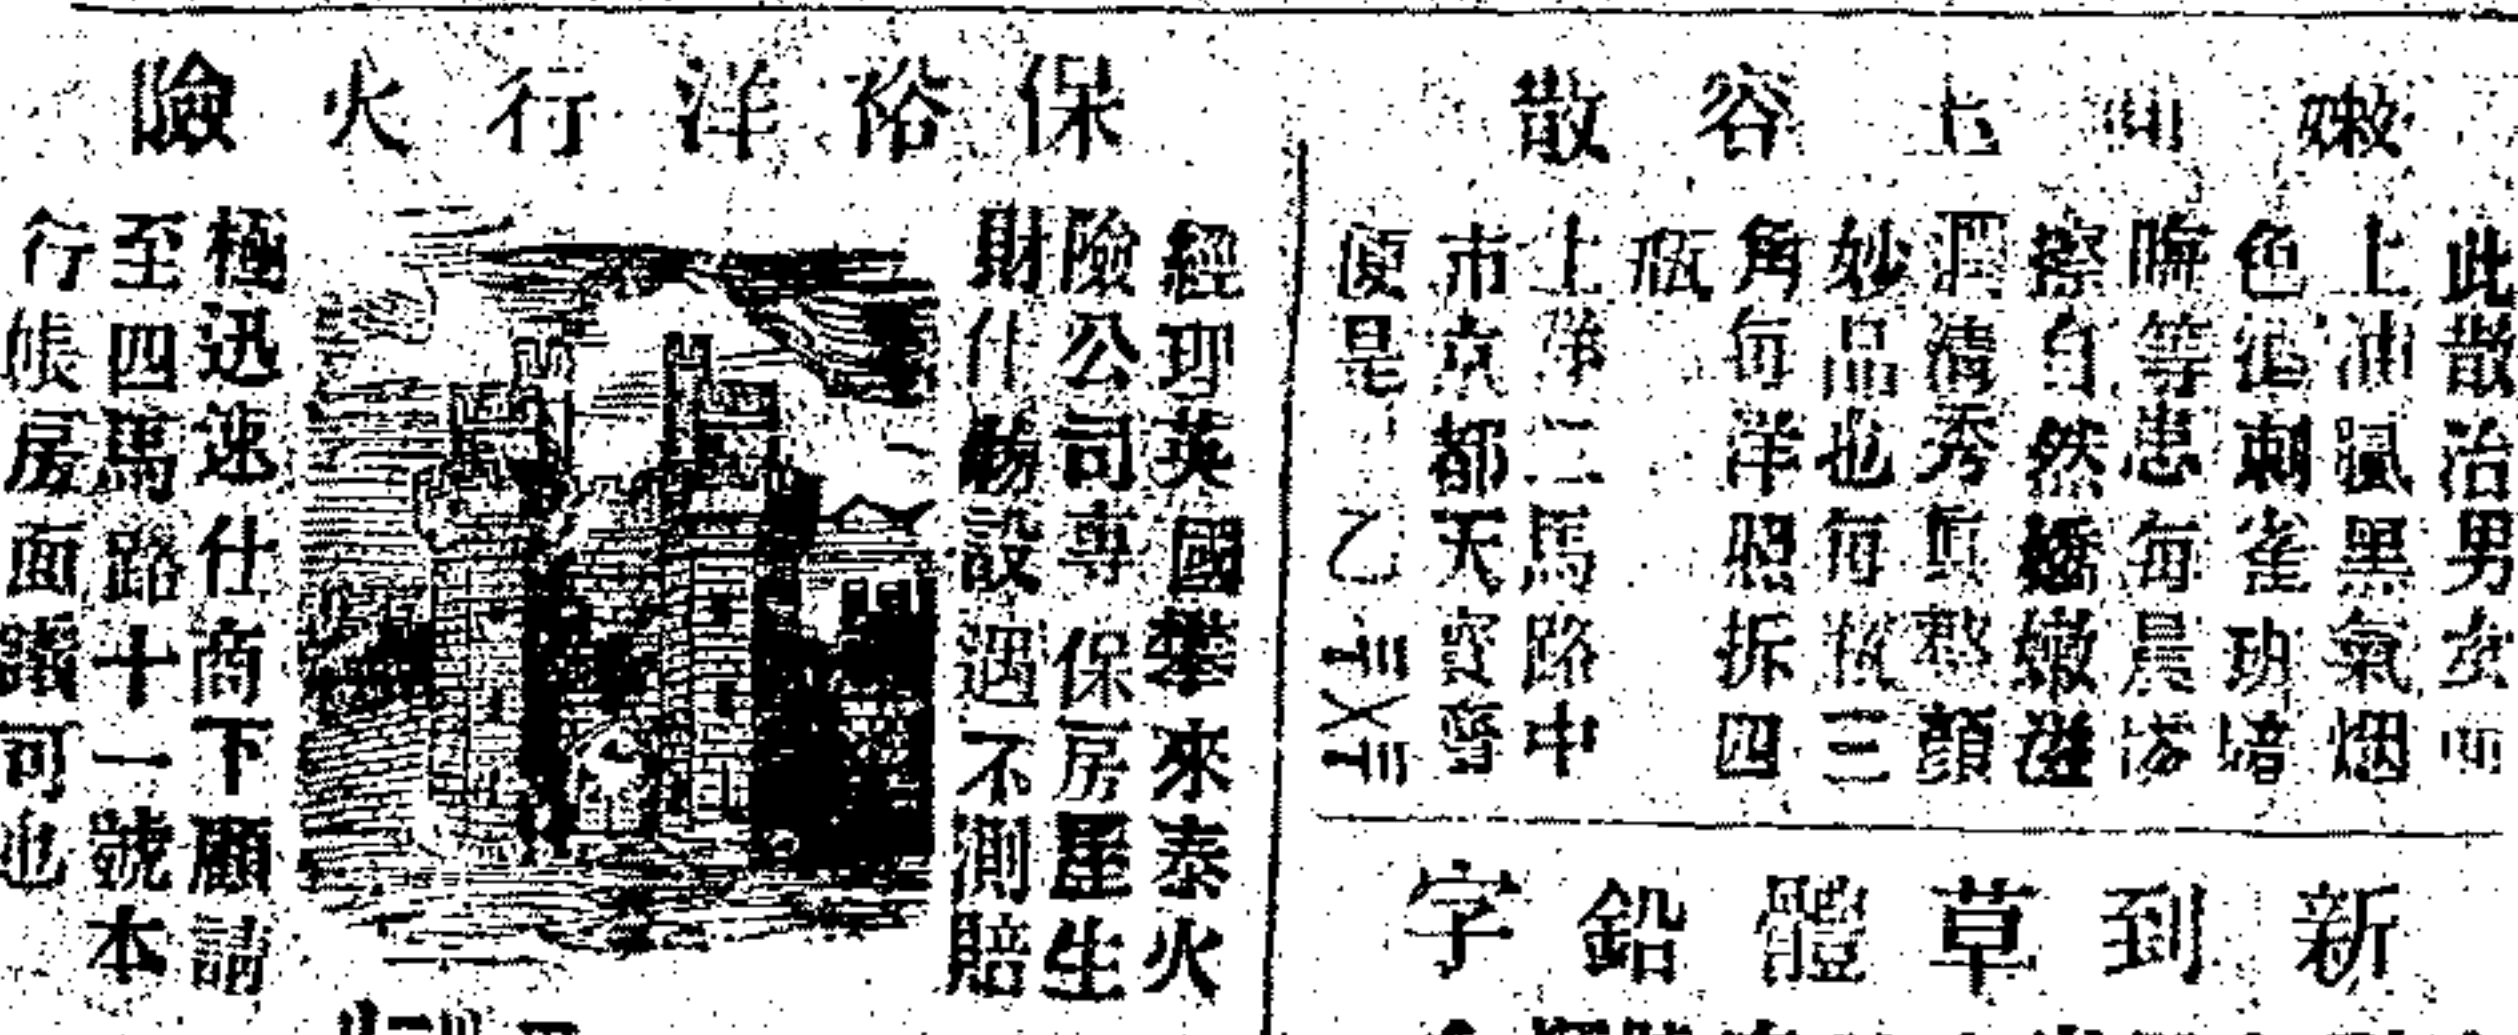 嫩面玉容散
此散治男女面
上油膩黑氣烟
色疵刺雀斑痣
晦等患每晨洗
擦自然嬌嫩滋
潤清秀真整顏
妙品也每瓶三
角每洋照拆四
瓶
上洋三馬路中
市京都天寶齋
便是
新到草體鉛字
保裕洋行火險
經理英國攀來泰火
險公司專保房屋生
財什物設遇不測賠
極迅速仕商下顧請
至四馬路十一號本
行帳房面議可也